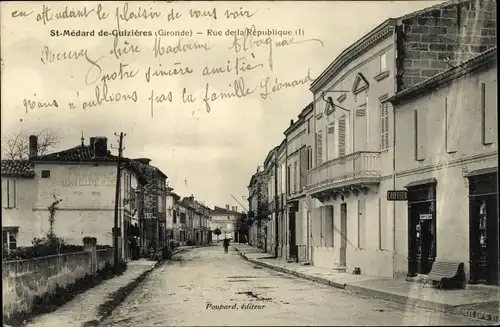 en attendant le plaisir de vous voir
St-Médard de-Guizières (Gironde) - Rue de la République (1)
Recevez chère Madame Chagnac
notre sincère amitié
nous n'oublions pas la famille Léonard
COIFFEUR
Poupard, éditeur